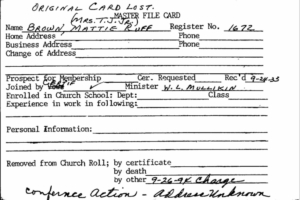 ORIGINAL CARD LOST.
(MRS. T.J. JR.)
MASTER FILE CARD
Name BROWN, MATTIE RUFF Register No. 1672
Home Address Phone
Business Address Phone
Change of Address
Prospect for Membership Cer. Requested Rec'd 9-28-35
Joined by Minister W.L. MULLIKIN
Enrolled in Church School: Dept: Class
Experience in work in following:
Personal Information:
Removed from Church Roll; by certificate
by death
by other 9-26-94 Charge
Conference Action - Address Unknown